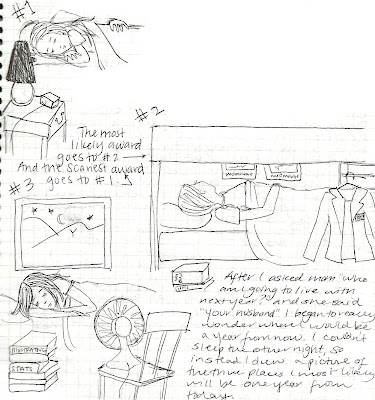 #1
#2
The most
likely award
goes to #2
And the scariest award
goes to #1.
#3
After I asked mom "who
am I going to live with
next year?" and she said
"your husband" I began to really
wonder where I would be
a year from now. I couldn't
sleep the other night, so
instead I drew a picture of
the three places I most likely
will be one year from
today.
STATS